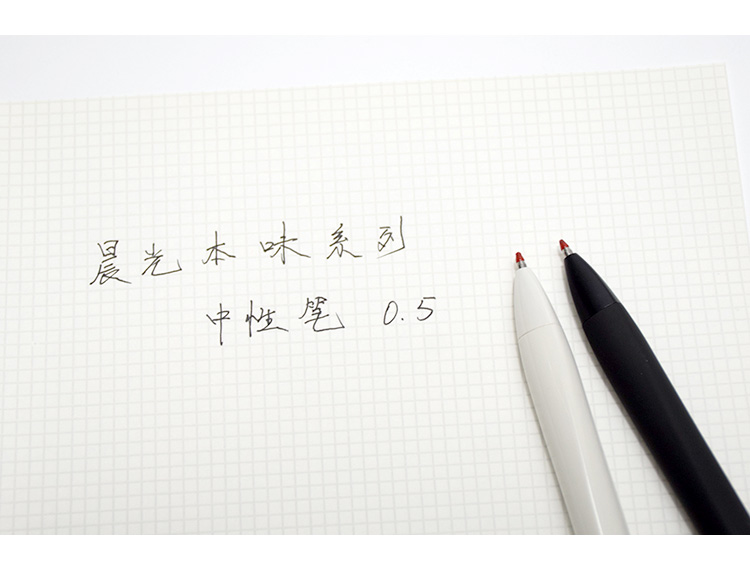 晨光本味系列
中性笔 0.5